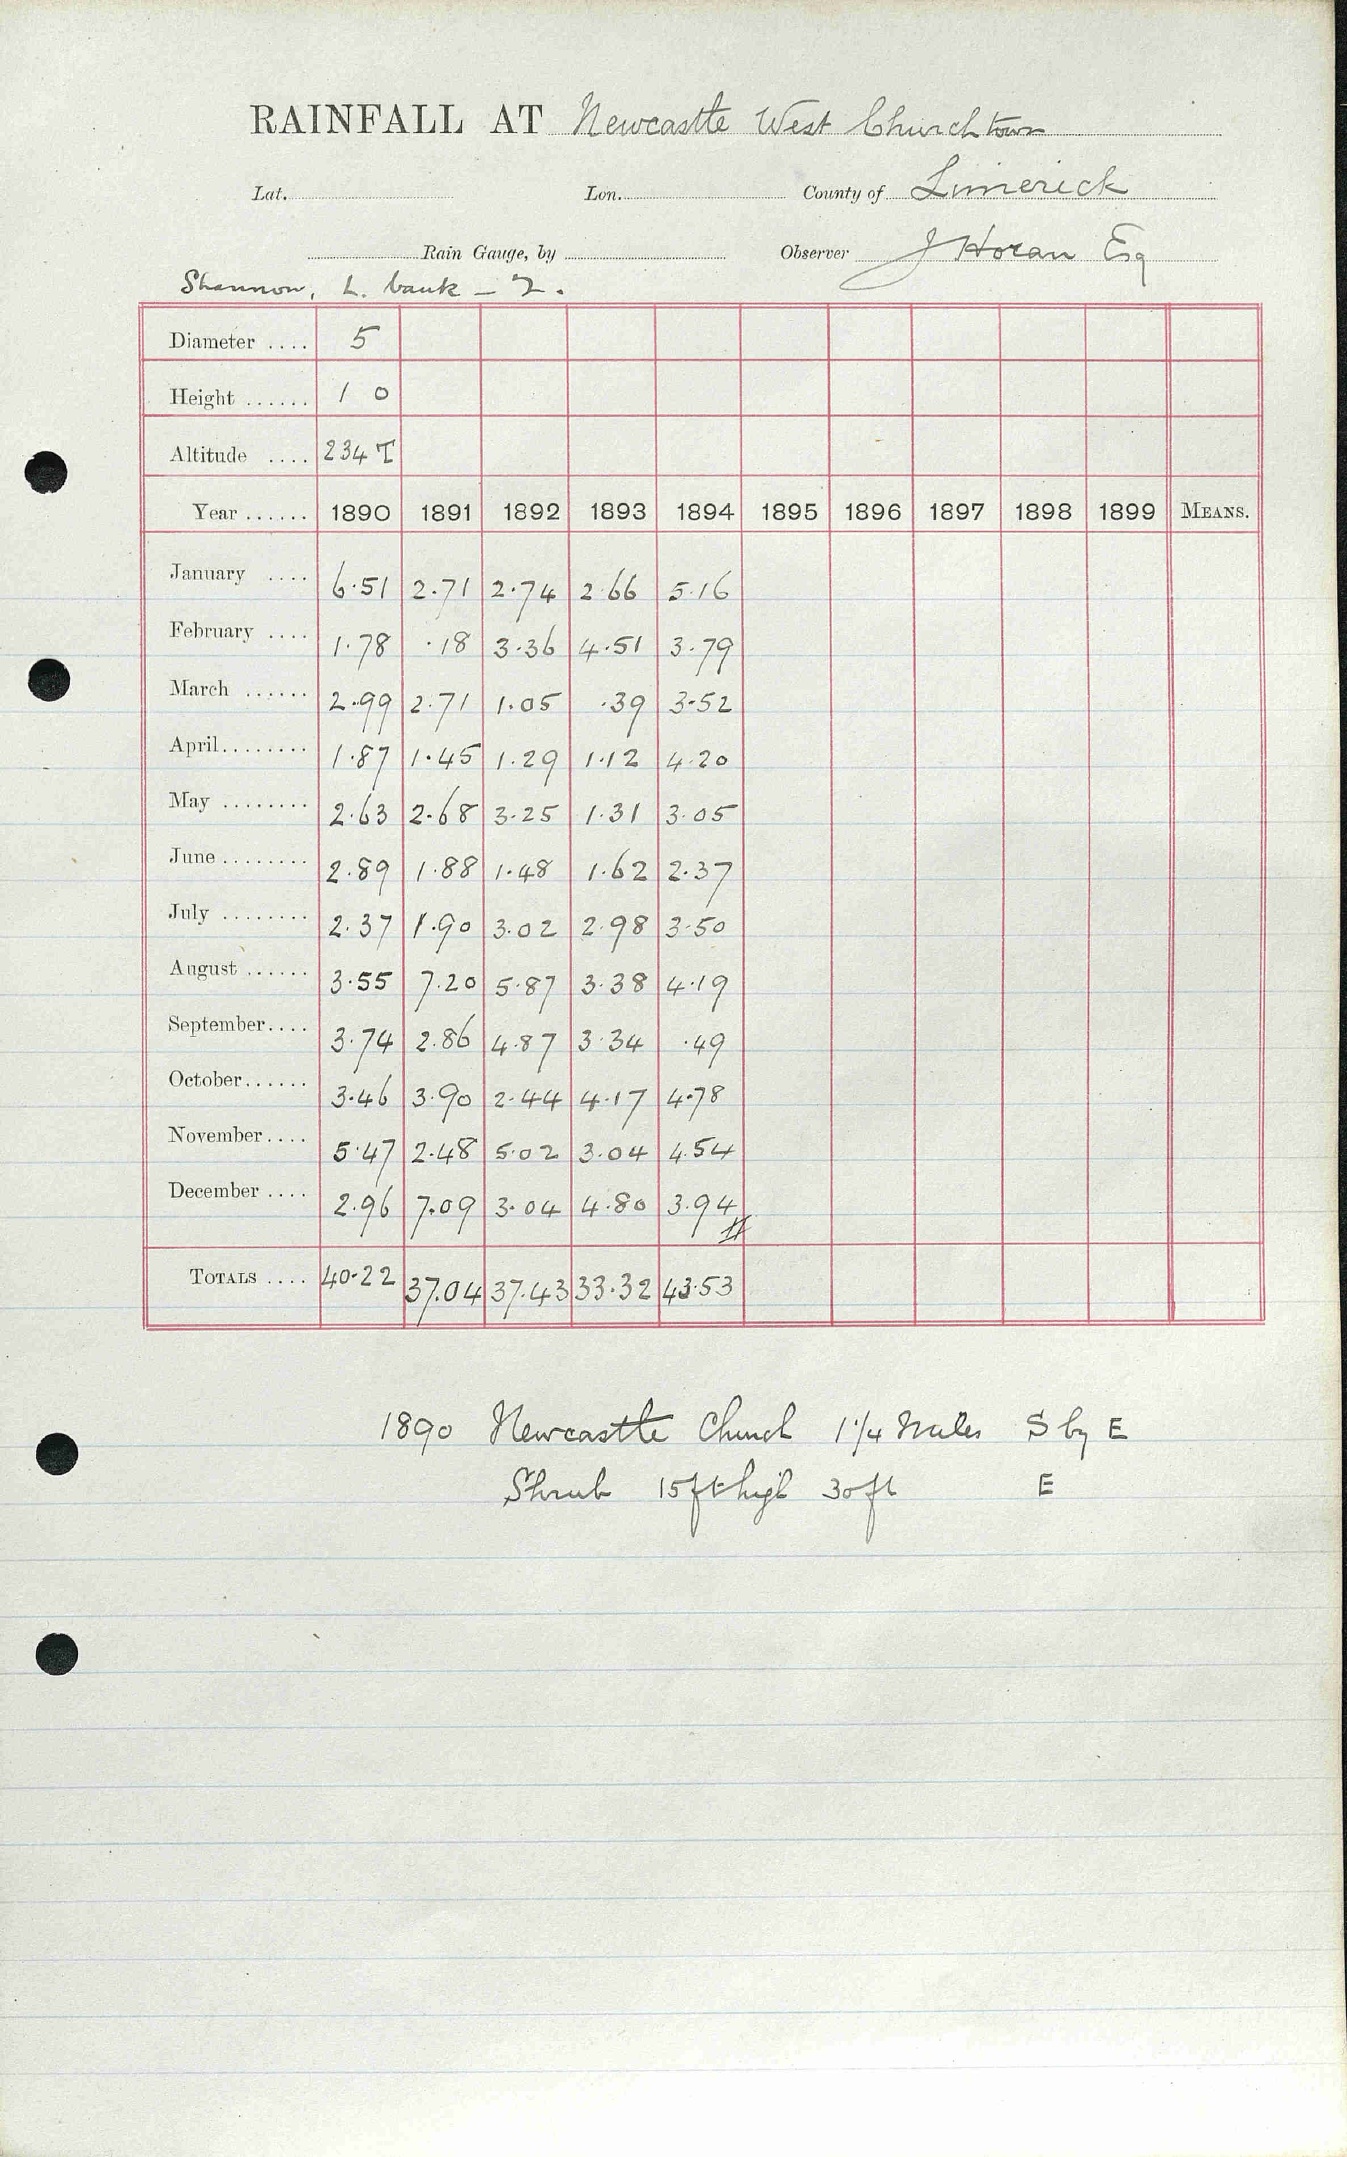 RAINFALL AT Newcastle West Churchtown
Lat. Lon. County of Limerick
Rain Gauge, by Observer J Horan Esq
Shannon, L. bank - 2.
Diameter .... 5
Height ...... 1 0
Altitude .... 234 T
Year ...... 1890 1891 1892 1893 1894 1895 1896 1897 1898 1899 MEANS.
January .... 6.51 2.71 2.74 2.66 5.16
February .... 1.78 .18 3.36 4.51 3.79
March ...... 2.99 2.71 1.05 .39 3.52
April........ 1.87 1.45 1.29 1.12 4.20
May ........ 2.63 2.68 3.25 1.31 3.05
June ........ 2.89 1.88 1.48 1.62 2.37
July ........ 2.37 1.90 3.02 2.98 3.50
August ...... 3.55 7.20 5.87 3.38 4.19
September.... 3.74 2.86 4.87 3.34 .49
October...... 3.46 3.90 2.44 4.17 4.78
November.... 5.47 2.48 5.02 3.04 4.54
December .... 2.96 7.09 3.04 4.80 3.94
TOTALS .... 40.22 37.04 37.43 33.32 43.53
1890 Newcastle Church 1 1/4 Miles S by E
Shrub 15 ft high 30 ft E